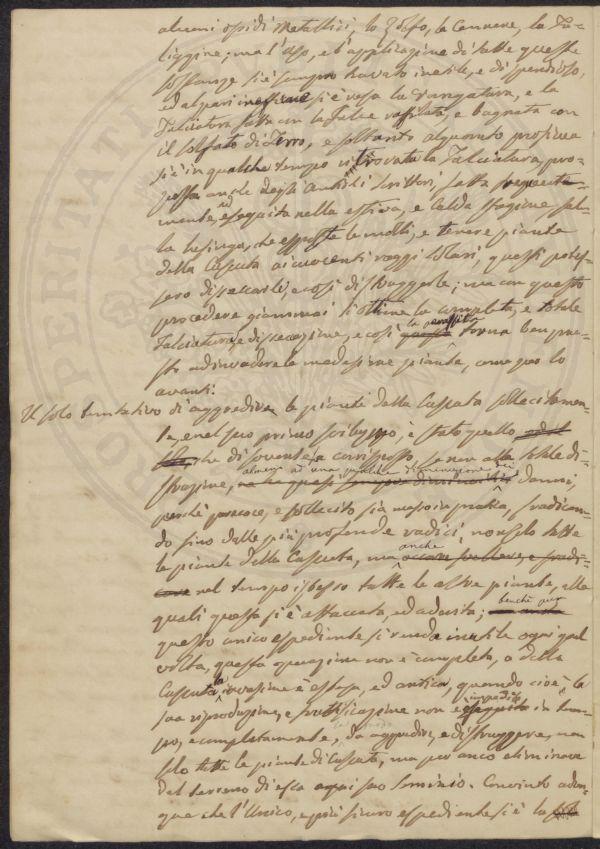 alcuni ossidi Metallici, lo Zolfo, la Cenere, la Fu-
liggine; ma l'uso, e l'applicazione di tutte queste
sostanze si è sempre trovato inutile, e dispendioso,
ed al pari si è resa la vangatura, e la
Falciatura fatta con la Falce raffilata, e bagnata con
il solfato di Ferro, e soltanto alquanto proficua
si è in qualche tempo ritrovata la Falciatura, pro-
posta anche degli Antichi Scrittori, fatta frequente-
mente, ed eseguita nella estiva, e calda stagione, sul-
la lusinga, che esposte le molli, e tenere piante
della Cuscuta ai cuocenti raggi solari, questi potes-
sero disseccarle, e così distruggerle; ma con questo
procedere giammai si ottiene la completa, e totale
Falciatura, e disseccazione, e così la parassita torna ben pre-
sto ad invadere le medesime piante, come per lo
avanti.
Il solo tentativo di aggredire le piante della Cuscuta sollecitamen-
te, e nel suo primo sviluppo, è stato quello
che di sovente à corrisposto, se non alla totale di-
struzione, almeno ad una qualche diminuzione dei danni,
perchè precoce, e sollecito sia messo in pratica, sradican-
do fino dalle più profonde radici, non solo tutte
le piante della Cuscuta, ma anche
nel tempo istesso tutte le altre piante, alle
quali questa si è attaccata, ed aderita; benchè per
questo unico espediente si renda inutile ogni qual
volta, questa operazione non è completa, o della
Cuscuta la invasione è estesa, ed antica, quando cioè la
sua riproduzione, e fruttificazione non è impedita in tem-
po, e completamente, da aggredire, e distruggere, non
solo tutte le piante di Cuscuta, ma per anco eliminare
dal terreno di essa ogni suo seminio. Convinto adun-
que che l'Unico, e più sicuro espediente si è la